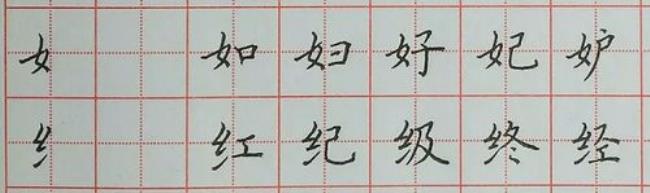 女 如 妇 好 妃 妒
纟 红 纪 级 终 经